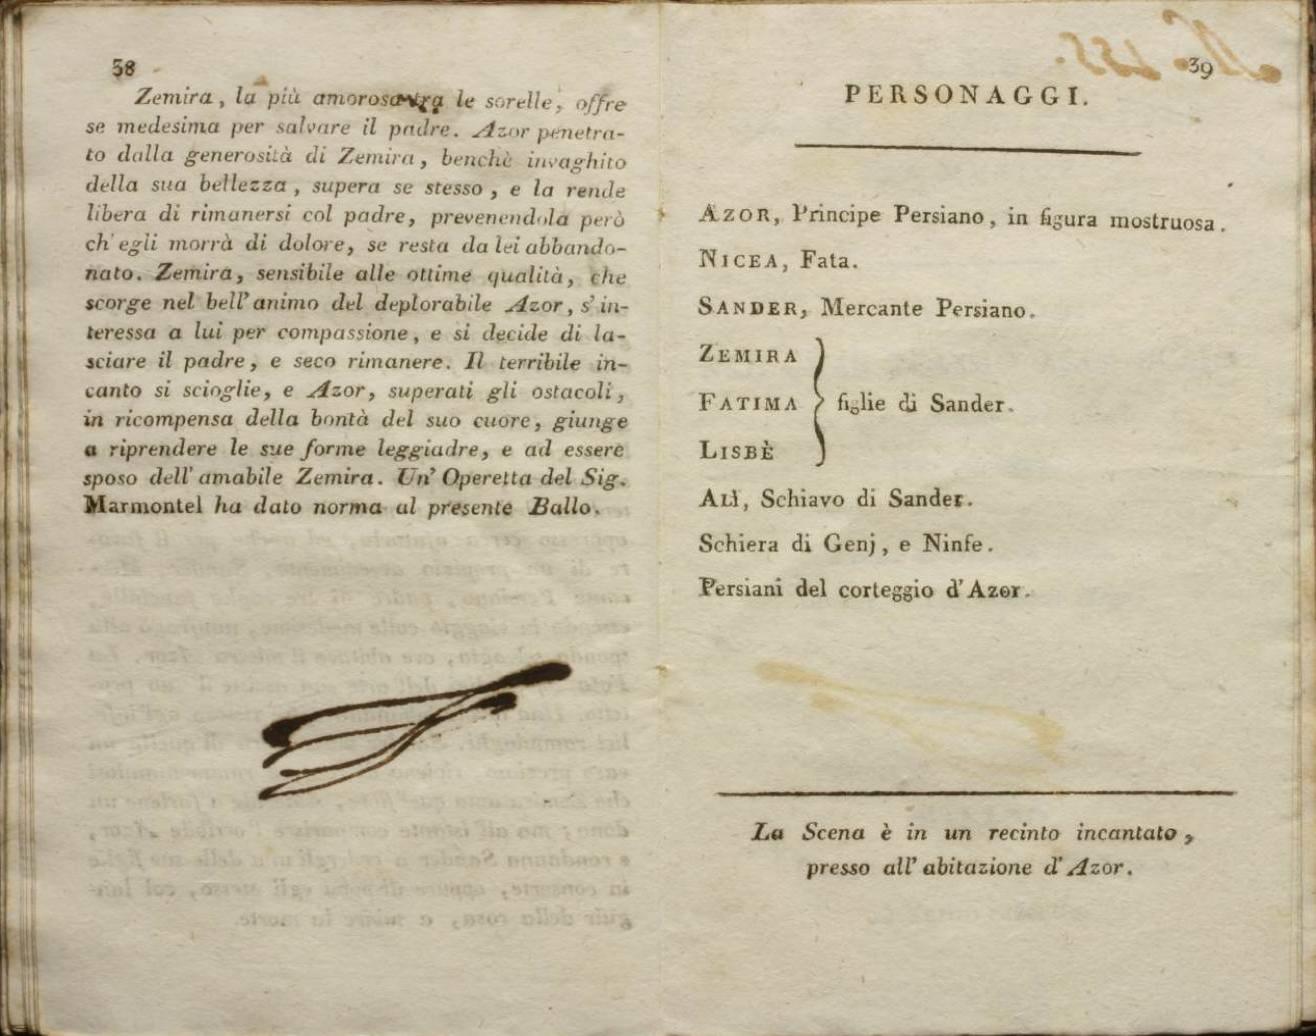 38
Zemira, la più amorosa tra le sorelle, offre
se medesima per salvare il padre. Azor penetra-
to dalla generosità di Zemira, benchè invaghito
della sua bellezza, supera se stesso, e la rende
libera di rimanersi col padre, prevenendola però
ch'egli morrà di dolore, se resta da lei abbando-
nato. Zemira, sensibile alle ottime qualità, che
scorge nel bell'animo del deplorabile Azor, s'in-
teressa a lui per compassione, e si decide di la-
sciare il padre, e seco rimanere. Il terribile in-
canto si scioglie, e Azor, superati gli ostacoli,
in ricompensa della bontà del suo cuore, giunge
a riprendere le sue forme leggiadre, e ad essere
sposo dell'amabile Zemira. Un' Operetta del Sig.
Marmontel ha dato norma al presente Ballo.
39
PERSONAGGI.
AZOR, Principe Persiano, in figura mostruosa.
NICEA, Fata.
SANDER, Mercante Persiano.
ZEMIRA
FATIMA
figlie di Sander.
LISBÈ
ALÌ, Schiavo di Sander.
Schiera di Genj, e Ninfe.
Persiani del corteggio d'Azor.
La Scena è in un recinto incantato,
presso all'abitazione d'Azor.